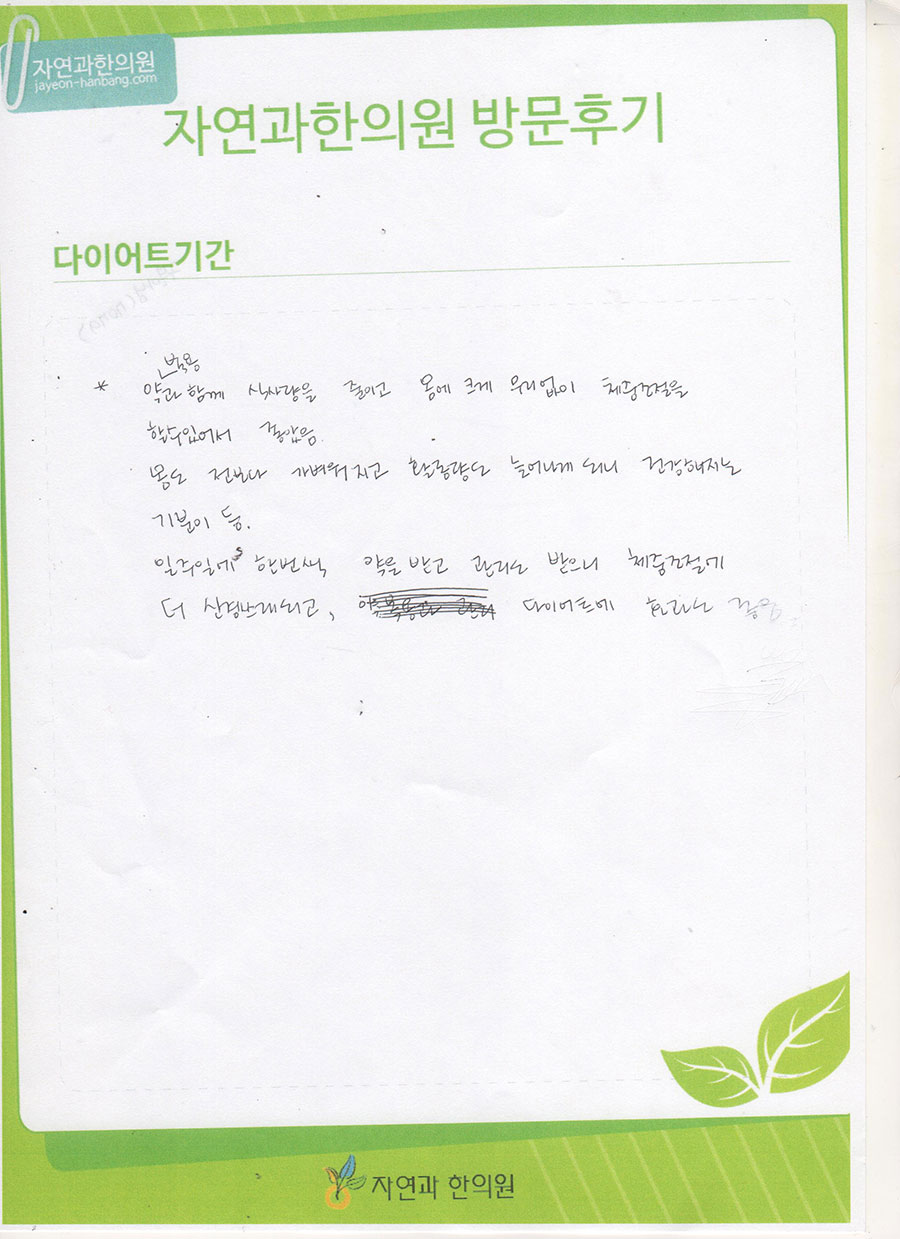 자연과한의원
jayeon-hanbang.com
자연과한의원 방문후기
다이어트기간
복용
* 약과 함께 식사량을 줄이고 몸에 크게 무리없이 체중조절을
할수있어서 좋았음.
몸도 전보다 가벼워지고 활동량도 늘어나게 되니 건강해지는
기분이 듬.
일주일에 한번씩 약을 받고 관리도 받으니 체중조절에
더 신경쓰게되고, 다이어트에 효과는 좋음
자연과 한의원